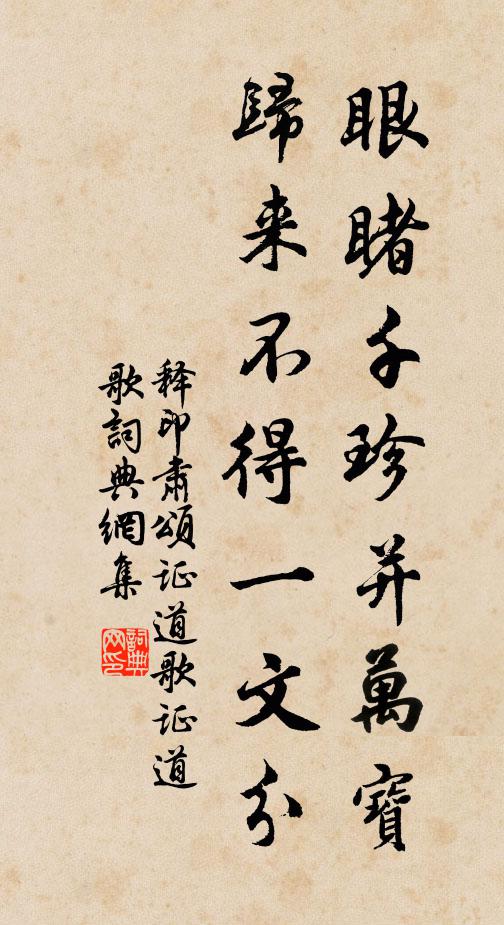 眼睹千珍并萬寶
歸来不得一文分
释印肃頌证道歌证道
歌詞典網集
詞典网印